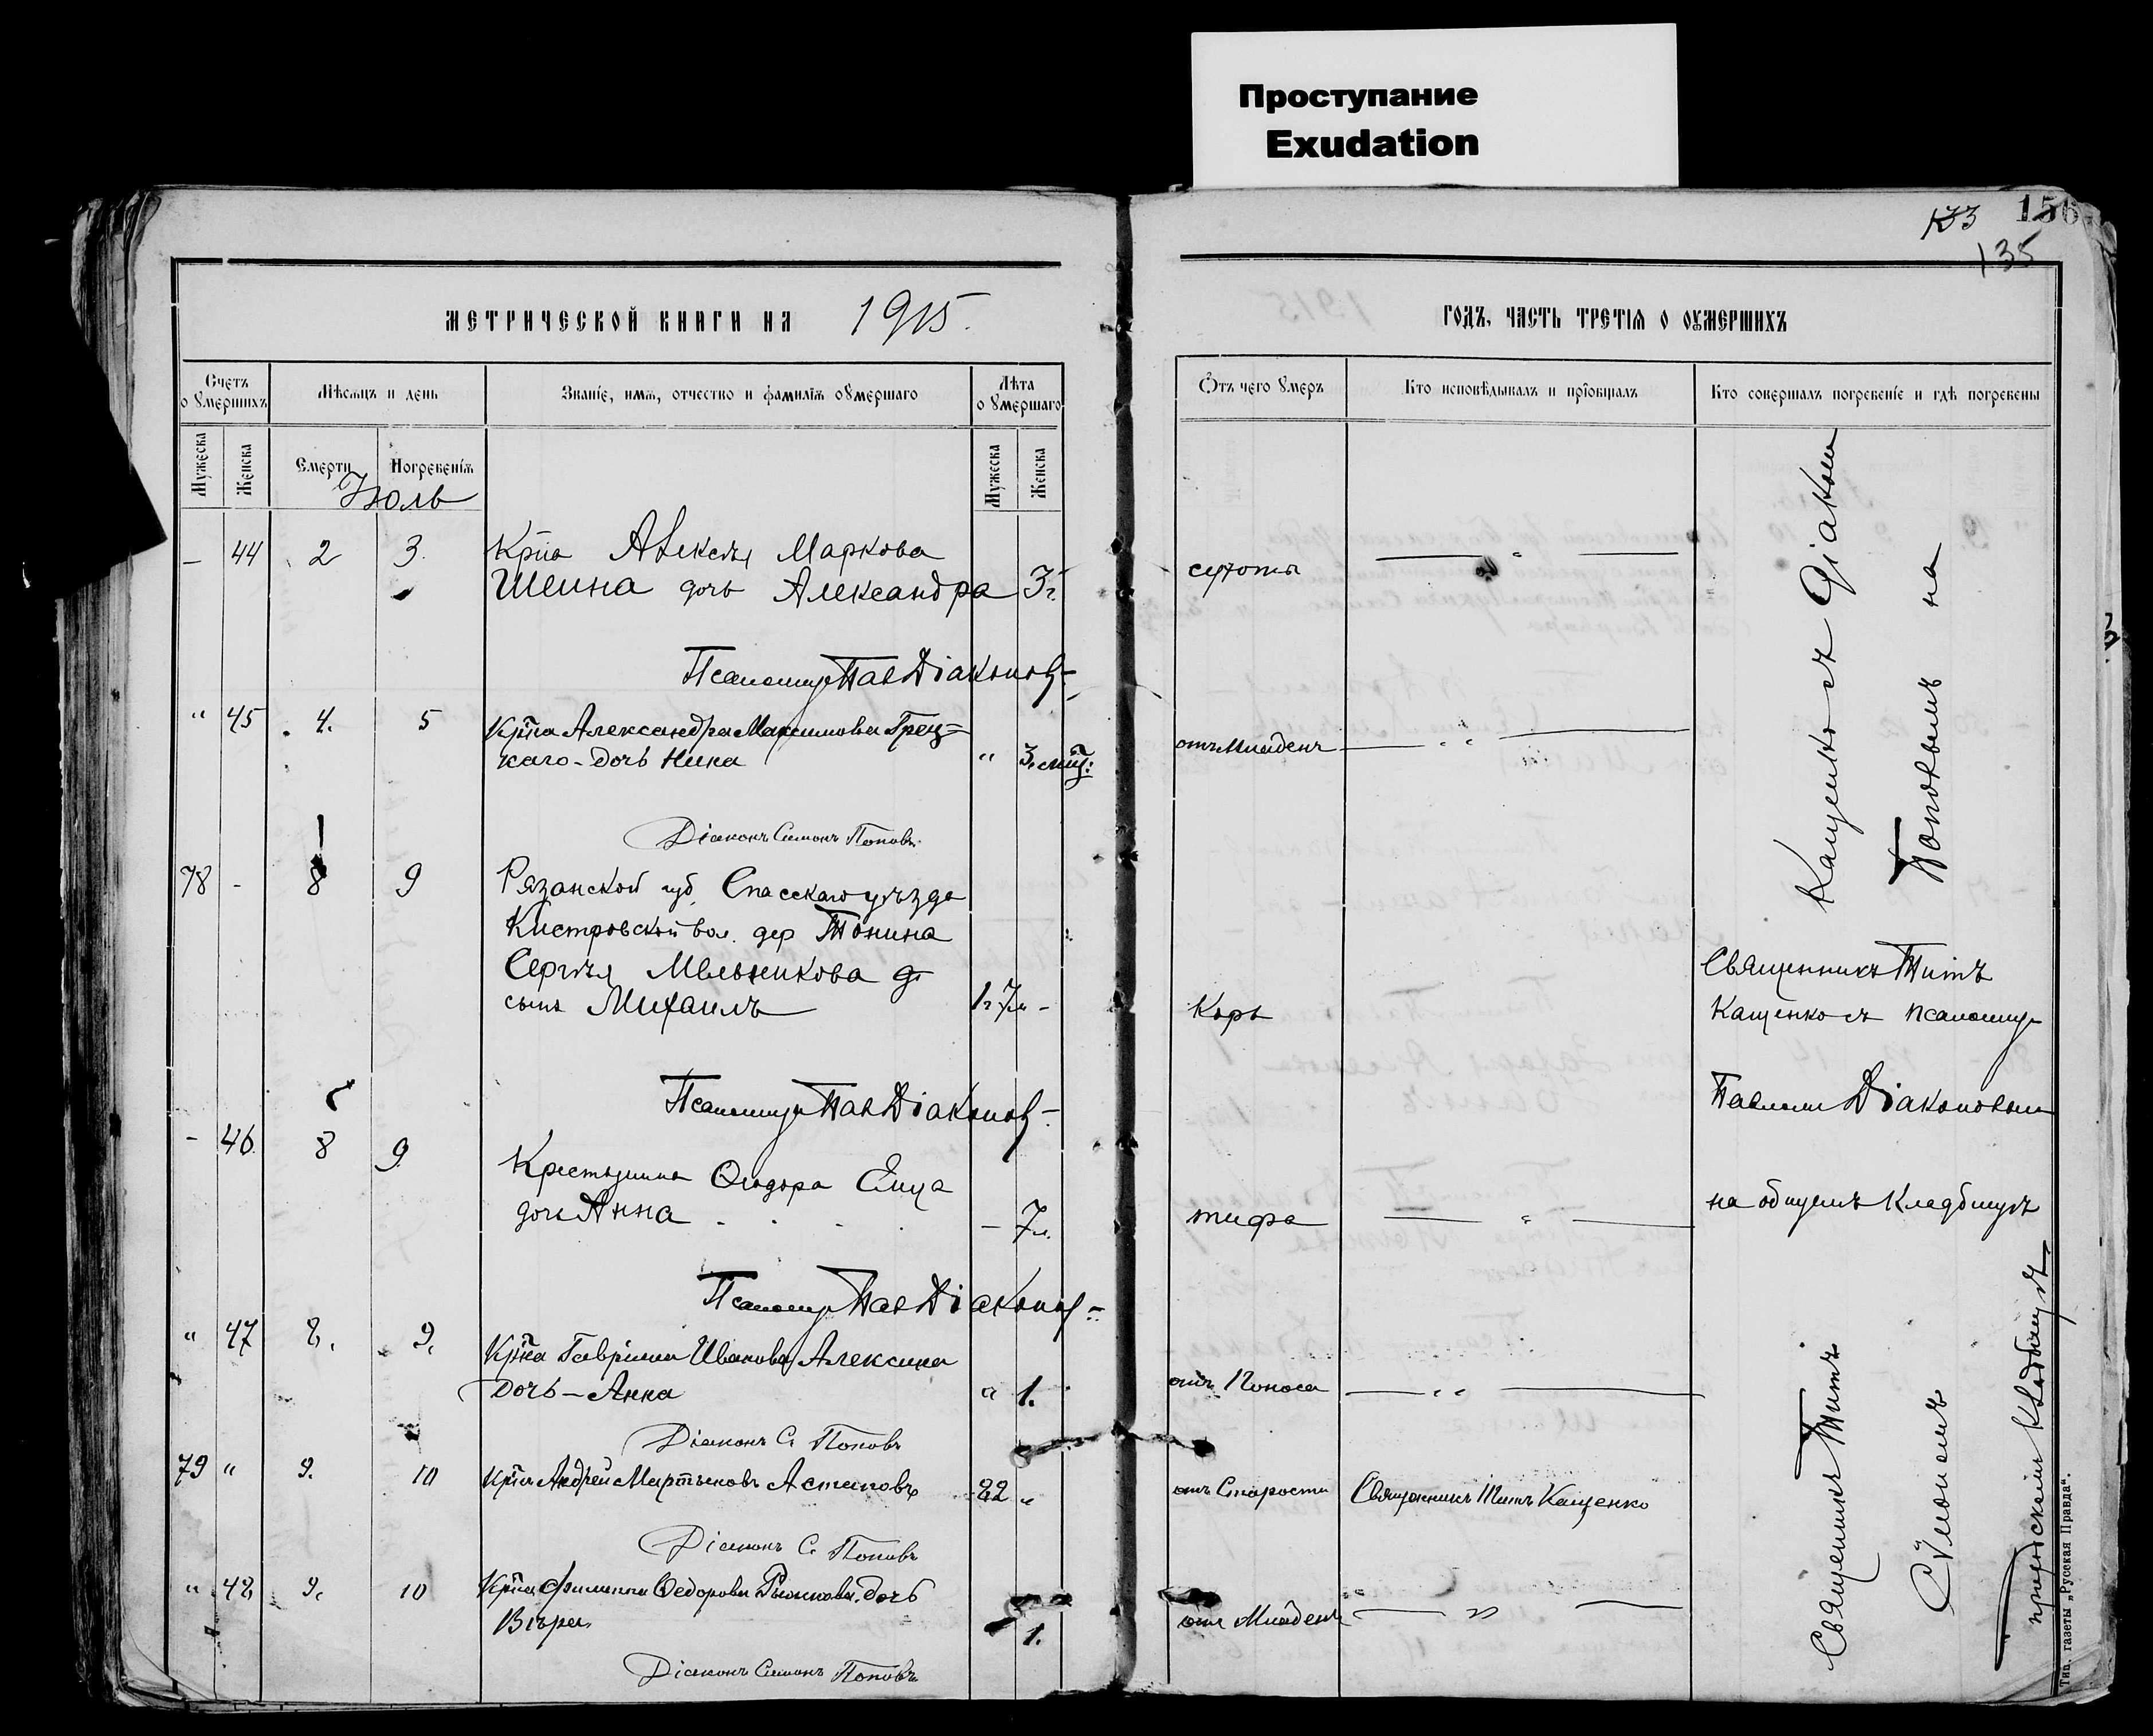 Проступание
Exudation
133
156
135
МЕТРИЧЕСКОЙ КНИГИ НА 1915.
Счетъ о умершихъ
Мѣсяцъ и день
Званіе, имя, отчество и фамилія оумершаго
Лѣта оумершаго
Мужеска
Женска
Смерти
Погребенія
Мужеска
Женска
Іюль
— 44 2 3. Крпа Алексѣя Маркова
Шеина дочь Александра 3 г.
Псаломщ Пав Діаконов
" 45 4. 5 Крпа Александра Максимова Грец=
каго - дочь Нина " 3. мц:
Діаконъ Симонъ Поповъ
78 - 8 9 Рязанской губ. Спасскаго уѣзда
Кистровской вол. дер Тонина
Сергѣя Мельникова
сынъ Михаилъ 1 г 7 м -
Псаломщ Пав Діаконов
- 46. 8 9 Крестьянина Ѳеодора Елца
дочь Анна - 7 л.
Псаломщ Пав Діаконов
" 47 8. 9. Крпа Гавріила Иванова Алексина
дочь - Анна " 1.
Діаконъ С. Поповъ
79 " 9. 10 Крпа Андрей Мартыновъ Астаповъ 82 "
Діаконъ С. Поповъ
" 48 9. 10 Крпа Филиппа Ѳедорова дочь
Вѣра 1.
Діаконъ Симонъ Поповъ
ГОДЪ, ЧАСТЬ ТРЕТІЯ О ОУМЕРШИХЪ
Отъ чего умеръ
Кто исповѣдывалъ и пріобщалъ
Кто совершалъ погребеніе и гдѣ погребены
сухоты
отъ Младенч
Корь
тифа
отъ Поноса
отъ Старости Священникъ Титъ Кащенко
отъ Младенч
Кащенко съ Діаконом
Поповымъ на
Священникъ Титъ
Кащенко съ псаломщ
Павломъ Діаконовым
на общемъ кладбищѣ
Священникъ Титъ
Сѵмономъ
приходскомъ кладбищѣ
Тип. газеты „Русская Правда“.